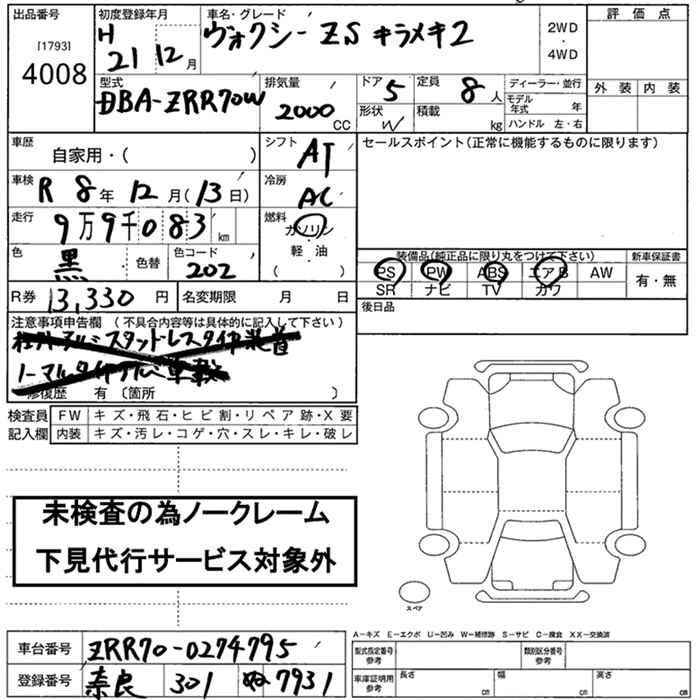 出品番号 初度登録年月 車名・グレード 評価点
[1793] 4008 H 21 12月 ヴォクシー ZS キラメキ2 2WD・4WD
型式 排気量 ドア 5 定員 8人 ディーラー・並行 外装 内装
DBA-ZRR70W 2000 CC 形状 W 積載 kg モデル年式 年 ハンドル 左・右
車歴 自家用・( ) シフト AT セールスポイント(正常に機能するものに限ります)
車検 R 8年 12月(13日) 冷房 AC
走行 9万9千083 km 燃料 ガソリン 軽・油 ( )
色 黒 色替 色コード 202 装備品(純正品に限り丸をつけて下さい) 新車保証書
PS PW ABS エアB AW 有・無
SR ナビ TV カワ
R券 13,330円 名変期限 月 日 後日品
注意事項申告欄 (不具合内容等は具体的に記入して下さい)
スタッドレスタイヤ装着
ノーマルタイヤ
修復歴 有 〔箇所 〕
検査員記入欄 FW キズ・飛石・ヒビ割・リペア跡・X要
内装 キズ・汚レ・コゲ・穴・スレ・キレ・破レ
未検査の為ノークレーム
下見代行サービス対象外
スペア
A−キズ E−エクボ U−凹み W−補修跡 S−サビ C−腐食 XX−交換済
車台番号 ZRR70-0274795 型式指定番号 参考 類別区分番号 参考
登録番号 奈良 301 ぬ 7931 車庫証明用 参考 長さ cm 幅 cm 高さ cm